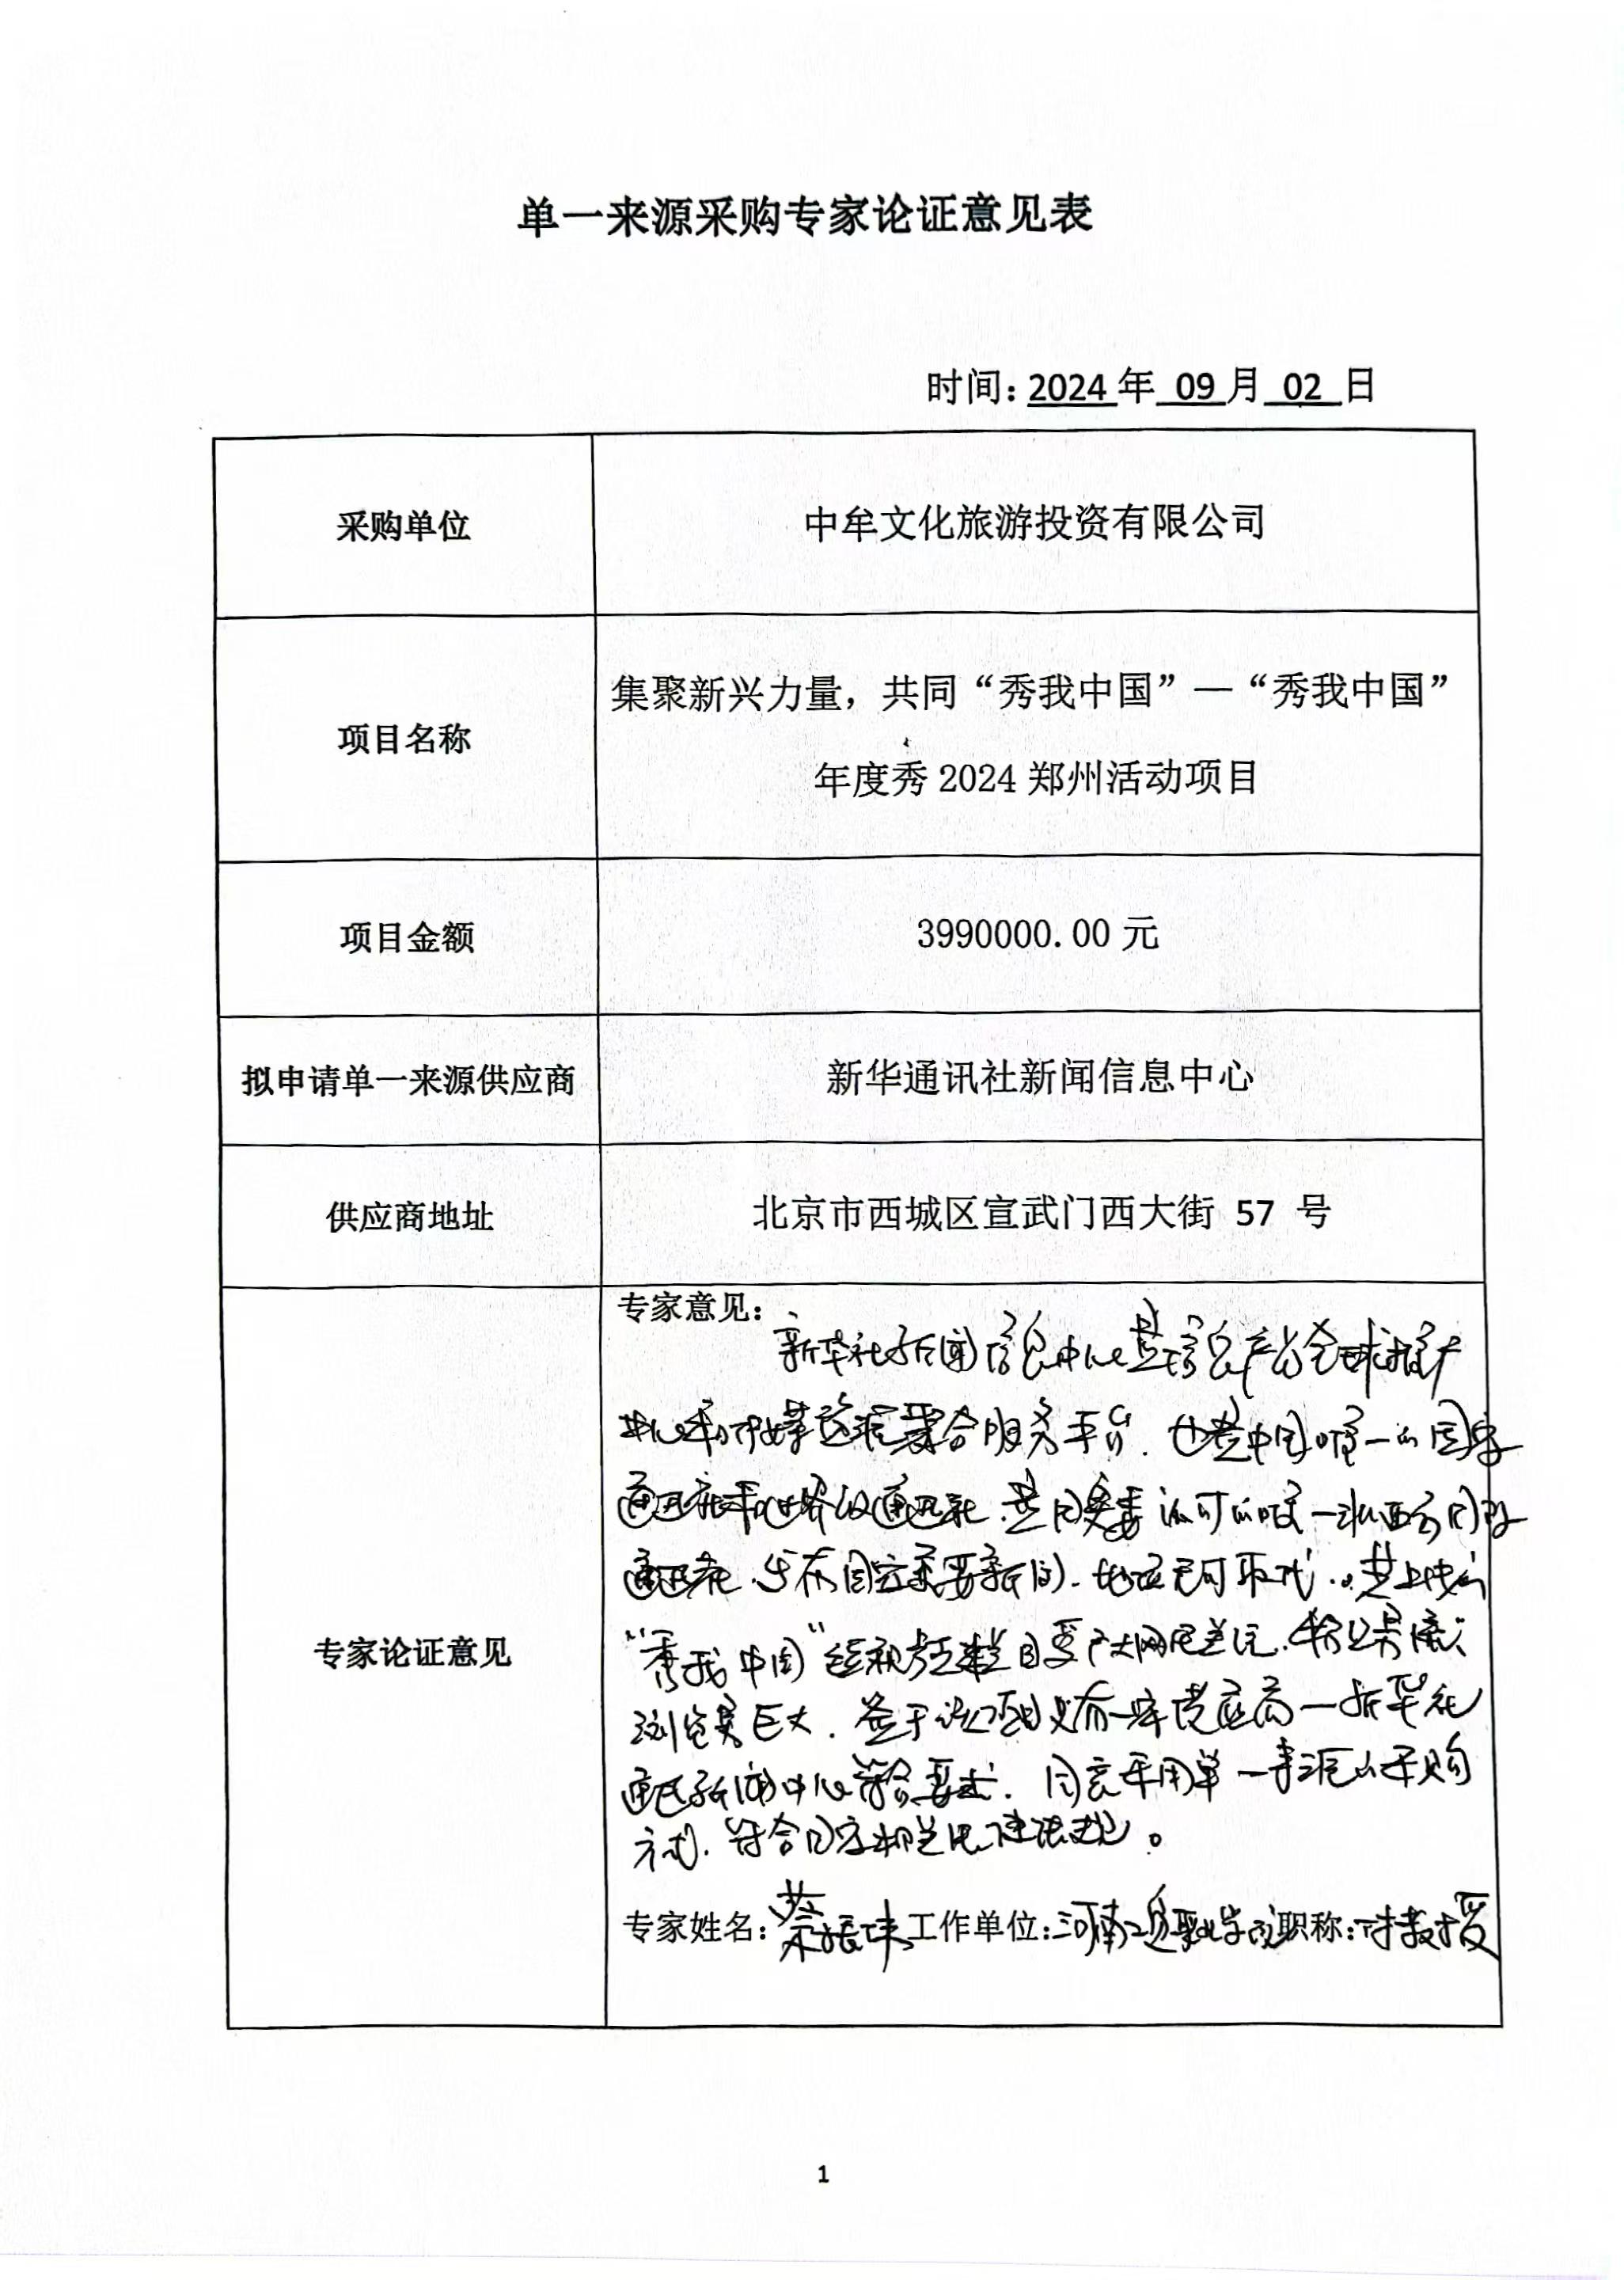 单一来源采购专家论证意见表
时间：2024年 09月 02 日
采购单位
中牟文化旅游投资有限公司
项目名称
集聚新兴力量，共同“秀我中国”—“秀我中国”
年度秀 2024 郑州活动项目
项目金额
3990000.00 元
拟申请单一来源供应商
新华通讯社新闻信息中心
供应商地址
北京市西城区宣武门西大街 57 号
专家论证意见
专家意见：
新华社新闻信息中心是信息产品全球推广
中心和 聚合服务平台，也是中国唯一的国家
通讯社和世界级通讯社，是 认可的唯一
通讯社，发布国家重要新闻，地位无可取代。
“秀我中国” 栏目受广大网民关注，
浏览量巨大，鉴于该项目只有一家供应商—新华社
通讯新闻中心符合要求，同意采用单一来源的采购
方式，符合国家相关法律法规。
专家姓名： 工作单位：河南 职业学院 职称：副教授
1